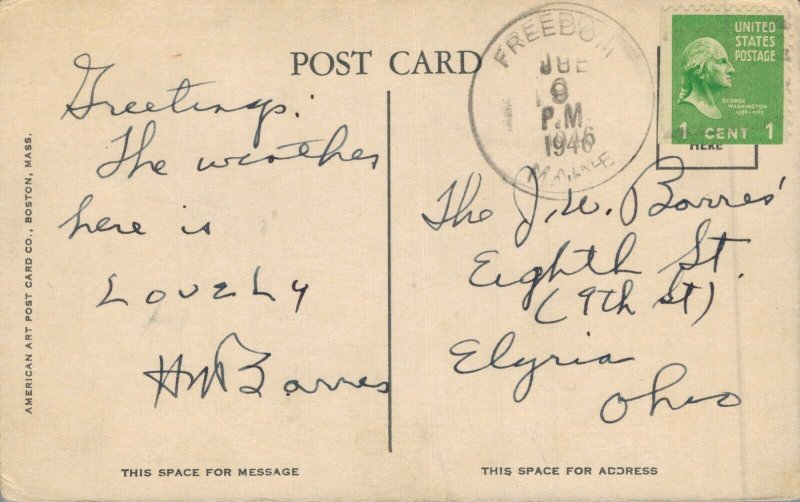 POST CARD
Greetings.
The weather
here is
LOVELY
HMBarres
THIS SPACE FOR MESSAGE
AMERICAN ART POST CARD CO., BOSTON, MASS.
FREEDOM
9
P.M.
1946
MAINE
UNITED
STATES
POSTAGE
GEORGE
WASHINGTON
1789-1797
1 CENT 1
HERE
The J.W. Barres'
Eighth St.
(9th St)
Elyria
Ohio
THIS SPACE FOR ADDRESS